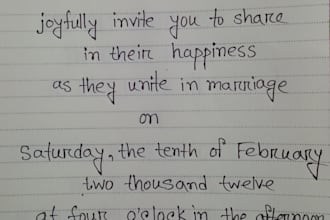 joyfully invite you to share
in their happiness
as they unite in marriage
on
Saturday, the tenth of February
two thousand twelve
at four o'clock in the afternoon